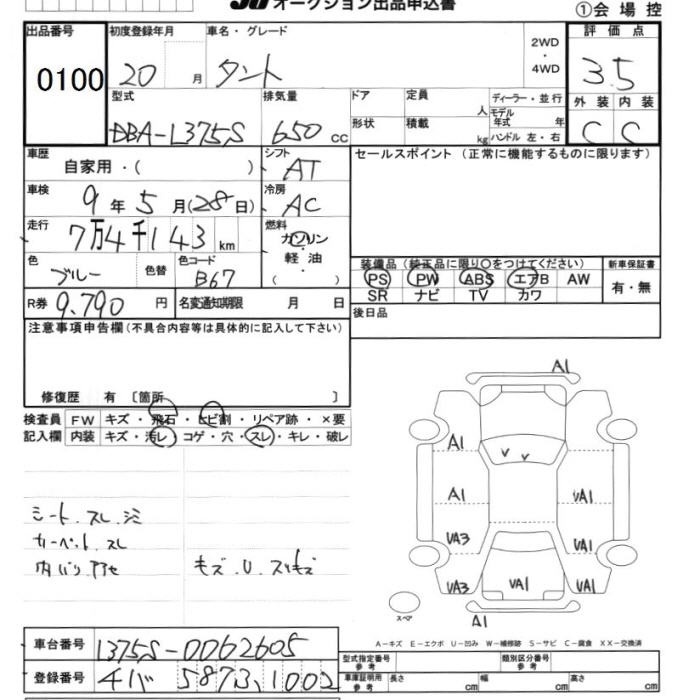 オークション出品申込書
①会場控
出品番号 初度登録年月 車名・グレード 2WD・4WD 評価点
0100 20 月 タント 3.5
型式 排気量 ドア 定員 人 ディーラー・並行 外装 内装
モデル年式 年
DBA-L375S 650 cc 形状 積載 kg ハンドル 左・右 C C
車歴 自家用・( ) シフト AT セールスポイント (正常に機能するものに限ります)
車検 9年5月(28日) 冷房 AC
走行 7万4千143km 燃料 ガソリン
軽油
( )
色 ブルー 色替 色コード B67 装備品 (純正品に限り○をつけてください) 新車保証書
PS PW ABS エアB AW 有・無
R券 9,790 円 名変通知期限 月 日 SR ナビ TV カワ
注意事項申告欄 (不具合内容等は具体的に記入して下さい) 後日品
修復歴 有 〔箇所 〕
検査員 FW キズ・飛石・ヒビ割・リペア跡・×要
記入欄 内装 キズ・汚レ・コゲ・穴・スレ・キレ・破レ
A1
A1
A1 UA1
UA3 UA1
UA3 UA1 UA1
A1
スペア
シート.スレ.シミ
カーペット.スレ
キズ.U.スリキズ
A-キズ E-エクボ U-凹み W-補修跡 S-サビ C-腐食 XX-交換済
車台番号 L375S-0062605 型式指定番号 参考 類別区分番号 参考
登録番号 5873,1002 車庫証明用 参考 長さ cm 幅 cm 高さ cm